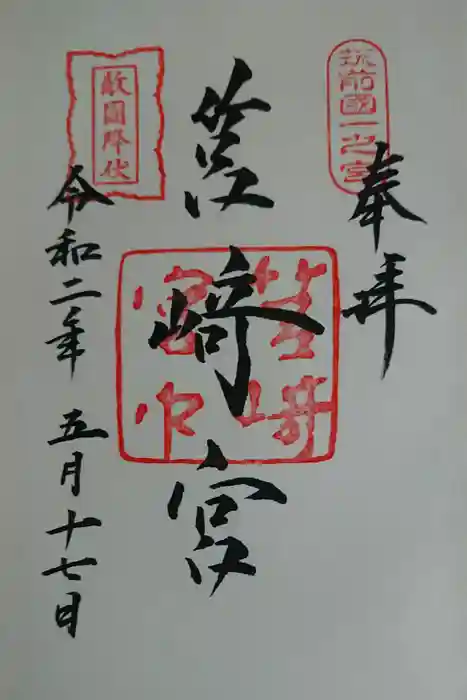 筑前國一之宮
奉拝
筥崎宮
筥崎宮印
敵國降伏
令和二年 五月十七日